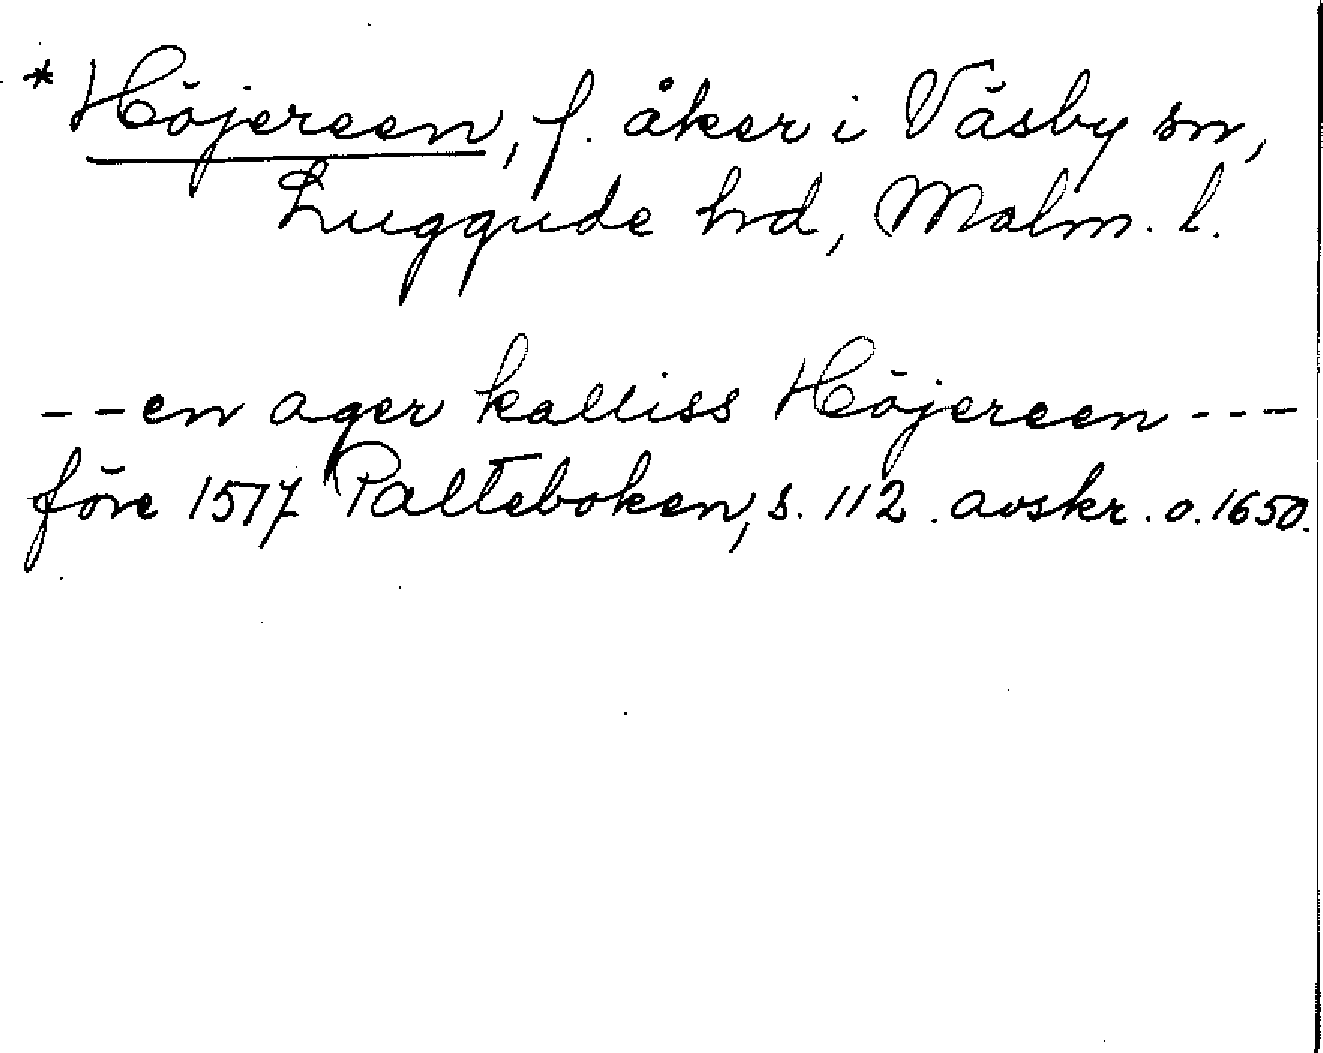 * Höjereen, f. åker i Väsby sn,
Luggude hd, Malm. l.
- - en ager kalliss Höjereen - - -
före 1517 Palteboken, s. 112. avskr. o. 1650.